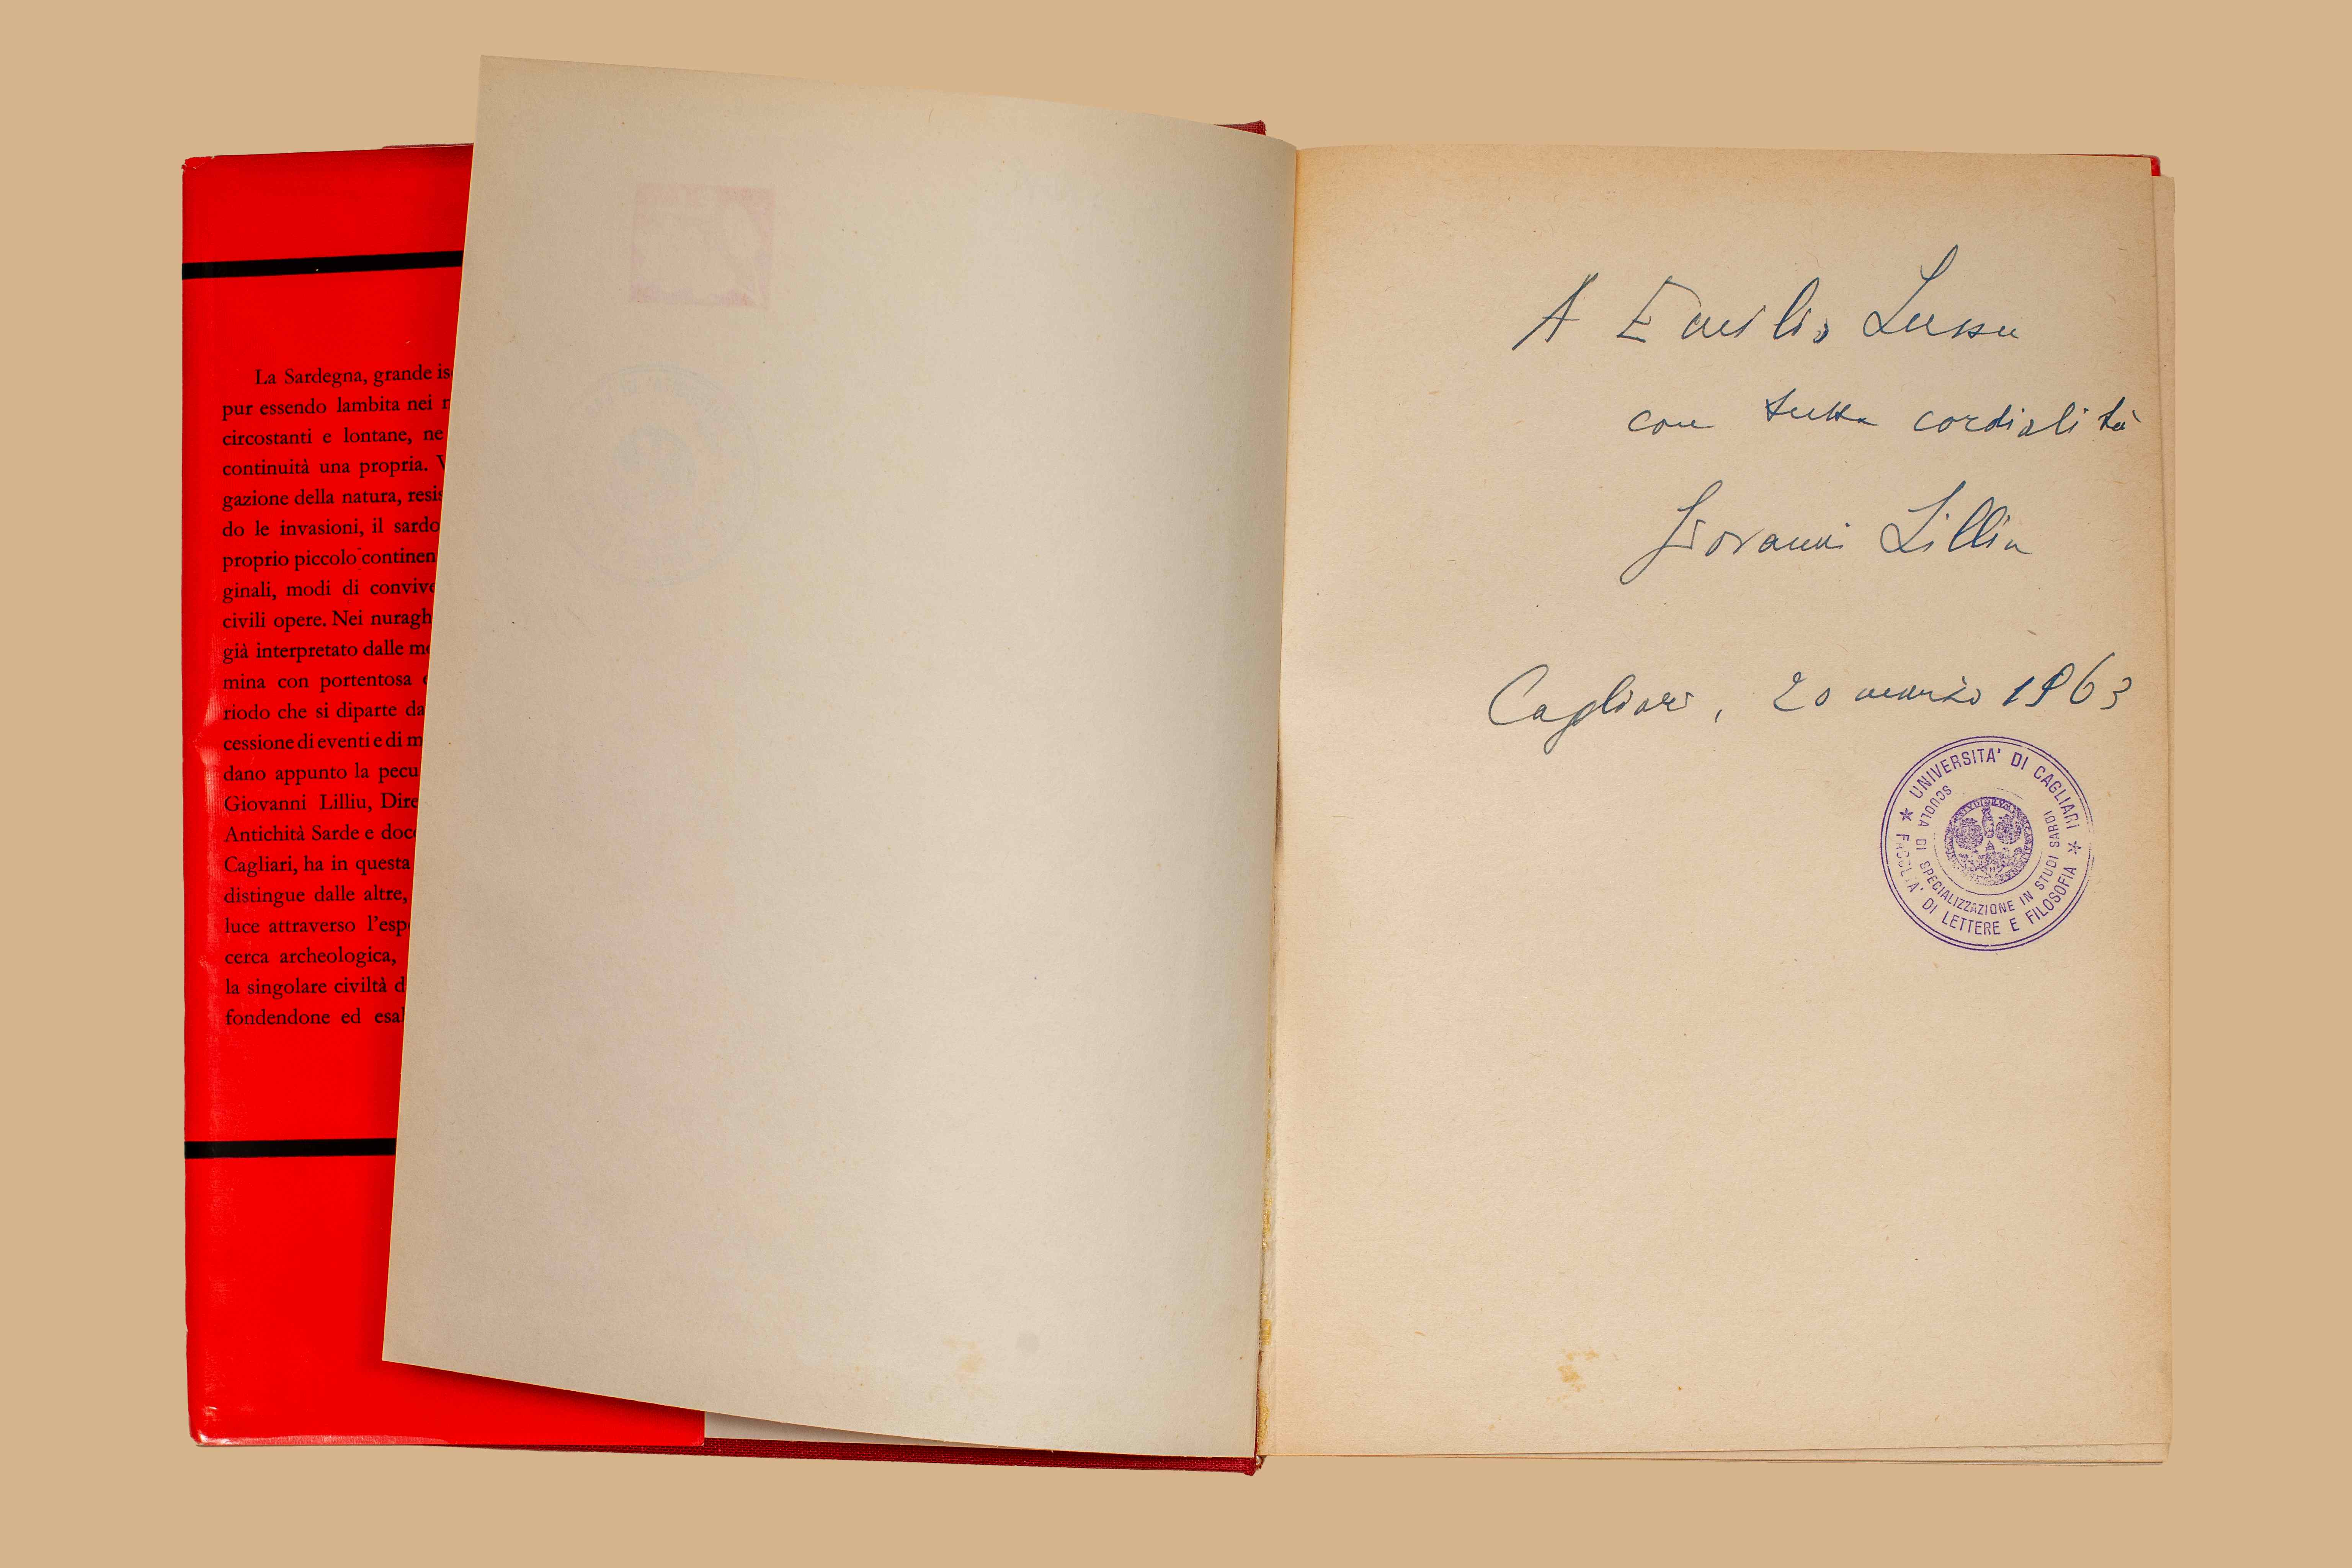 La Sardegna, grande is
pur essendo lambita nei
circostanti e lontane, ne
continuità una propria.
gazione della natura, resis
do le invasioni, il sardo
proprio piccolo continen
ginali, modi di convive
civili opere. Nei nuragh
già interpretato dalle m
mina con portentosa
riodo che si diparte da
cessione di eventi e di m
dano appunto la pecu
Giovanni Lilliu, Dire
Antichità Sarde e doc
Cagliari, ha in questa
distingue dalle altre,
luce attraverso l'esp
cerca archeologica,
la singolare civiltà d
fondendone ed esal
A Emilio Lussu
con tutta cordialità
Giovanni Lilliu
Cagliari, 20 marzo 1963
* UNIVERSITA' DI CAGLIARI *
FACOLTA' DI LETTERE E FILOSOFIA
SCUOLA DI SPECIALIZZAZIONE IN STUDI SARDI